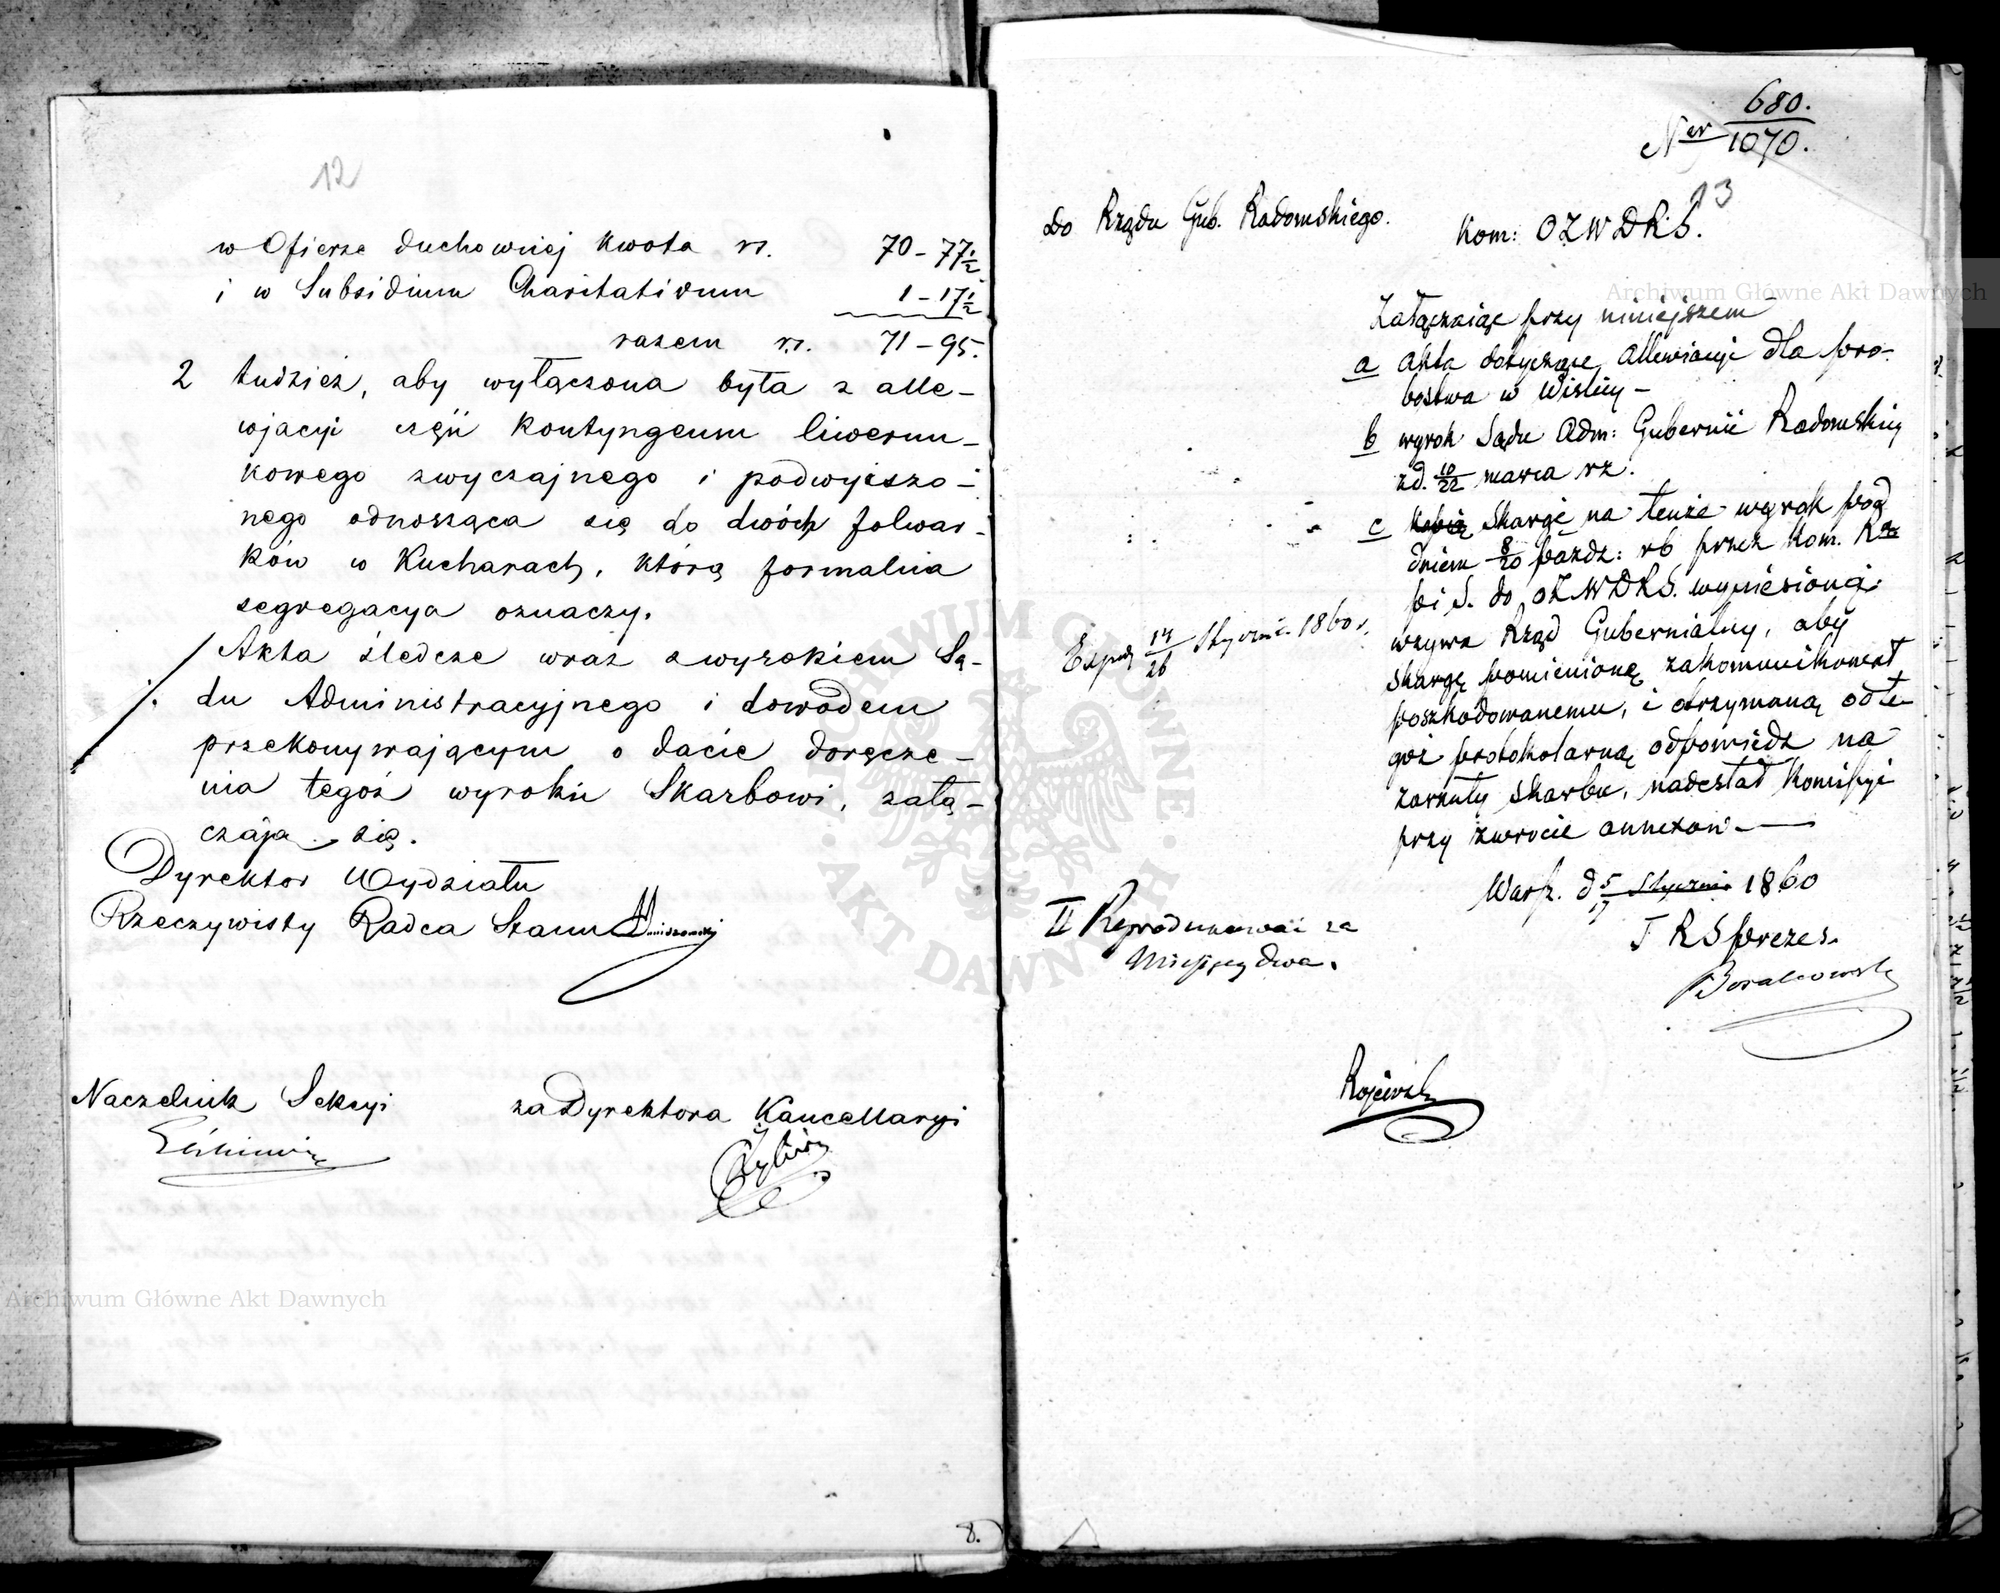 12
w Ofierze duchownej kwota rs. 70 – 77½
i w Subsidium Charitativum 1 – 17½
razem rs. 71 – 95.
2 tudzież, aby wyłączona była z alle-
wjacyi część kontyngensu liwerun-
kowego zwyczajnego i podwyższo-
nego odnosząca się do dwóch folwar-
ków w Kucharach, którą formalna
segregacya oznaczy.
Akta śledcze wraz z wyrokiem Są-
du Administracyjnego i dowodem
przekonywającym o dacie doręcze-
nia tegoż wyroku Skarbowi, załą-
czają się.
Dyrektor Wydziału
Rzeczywisty Radca Stanu
Naczelnik Sekcyi
za Dyrektora Kancellaryi
8.
Ner 680./1070.
13
Do Rządu Gub. Radomskiego.
Kom: OZWDRS.
Załączając przy niniejszem
a akta dotyczące allewiacyi dla pro-
bostwa w Wiślicy –
b wyrok Sądu Adm: Gubernii Radomskiej
z d. 10/22 marca rz.
c kopię skargę na tenże wyrok pod
dniem 8/20 paźdz: rb przez Kom. Rz
p i S. do OZWDRS. wyniesionej
wzywa Rząd Gubernialny, aby
skargę pomienioną zakomunikował
poszkodowanemu, i otrzymaną od te-
goż protokolarną odpowiedź na
zarzuty skarbu, nadesłał Kommissyi
przy zwrocie annexów –
Warsz. d 5/17 Stycznia 1860
T R S prezes.
14/26 Stycznia 1860 r.
II Reprodukować za
Miesięcy dwa.
Archiwum Główne Akt Dawnych
Archiwum Główne Akt Dawnych
ARCHIWUM GŁÓWNE · AKT DAWNYCH ·